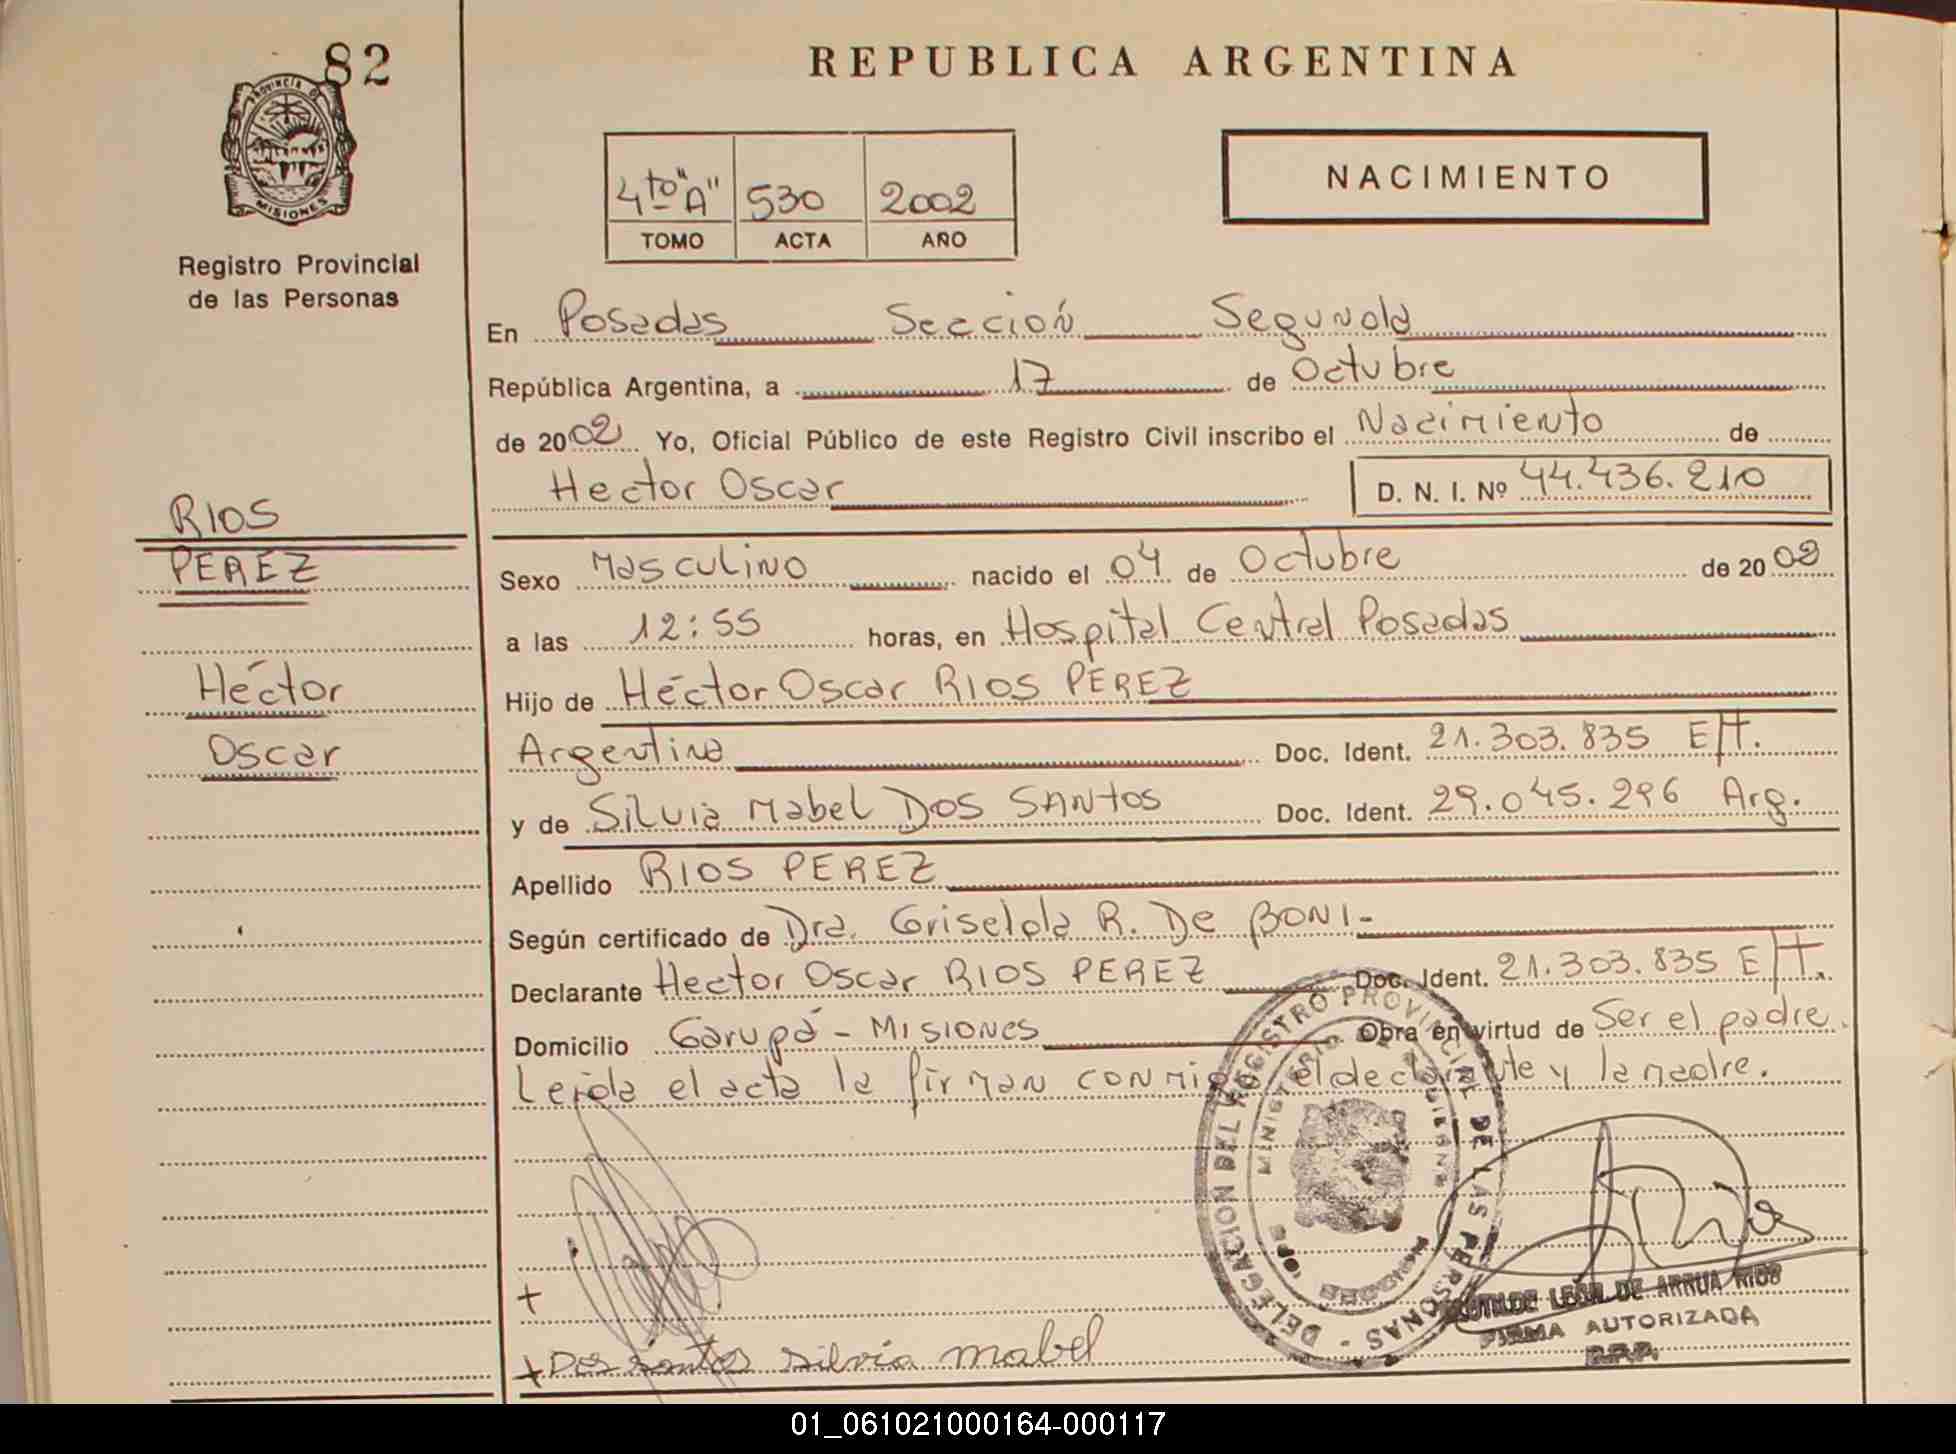 82
REPUBLICA ARGENTINA
PROVINCIA DE
MISIONES
Registro Provincial
de las Personas
4to "A" 530 2002
TOMO ACTA AÑO
NACIMIENTO
En Posadas Sección Segunda
República Argentina, a 17 de Octubre
de 2002 Yo, Oficial Público de este Registro Civil inscribo el Nacimiento de
Hector Oscar D. N. I. Nº 44.436.210
RIOS
PEREZ
Héctor
Oscar
Sexo Masculino nacido el 04 de Octubre de 2002
a las 12:55 horas, en Hospital Central Posadas
Hijo de Héctor Oscar RIOS PEREZ
Argentina Doc. Ident. 21.303.835 E/T.
y de Silvia Mabel DOS SANTOS Doc. Ident. 29.045.296 Arg.
Apellido RIOS PEREZ
Según certificado de Dra. Griselda R. De BONI-
Declarante Hector Oscar RIOS PEREZ Doc. Ident. 21.303.835 E/T.
Domicilio Garupá - MISIONES Obra en virtud de Ser el padre.
Leida el acta la firman conmigo el declarante y la madre.
DELEGACION DEL REGISTRO PROVINCIAL DE LAS PERSONAS -
MINISTERIO DE
+
DE ARRUA RIOS
FIRMA AUTORIZADA
R.P.P.
+ Dos santos silvia mabel
01_061021000164-000117